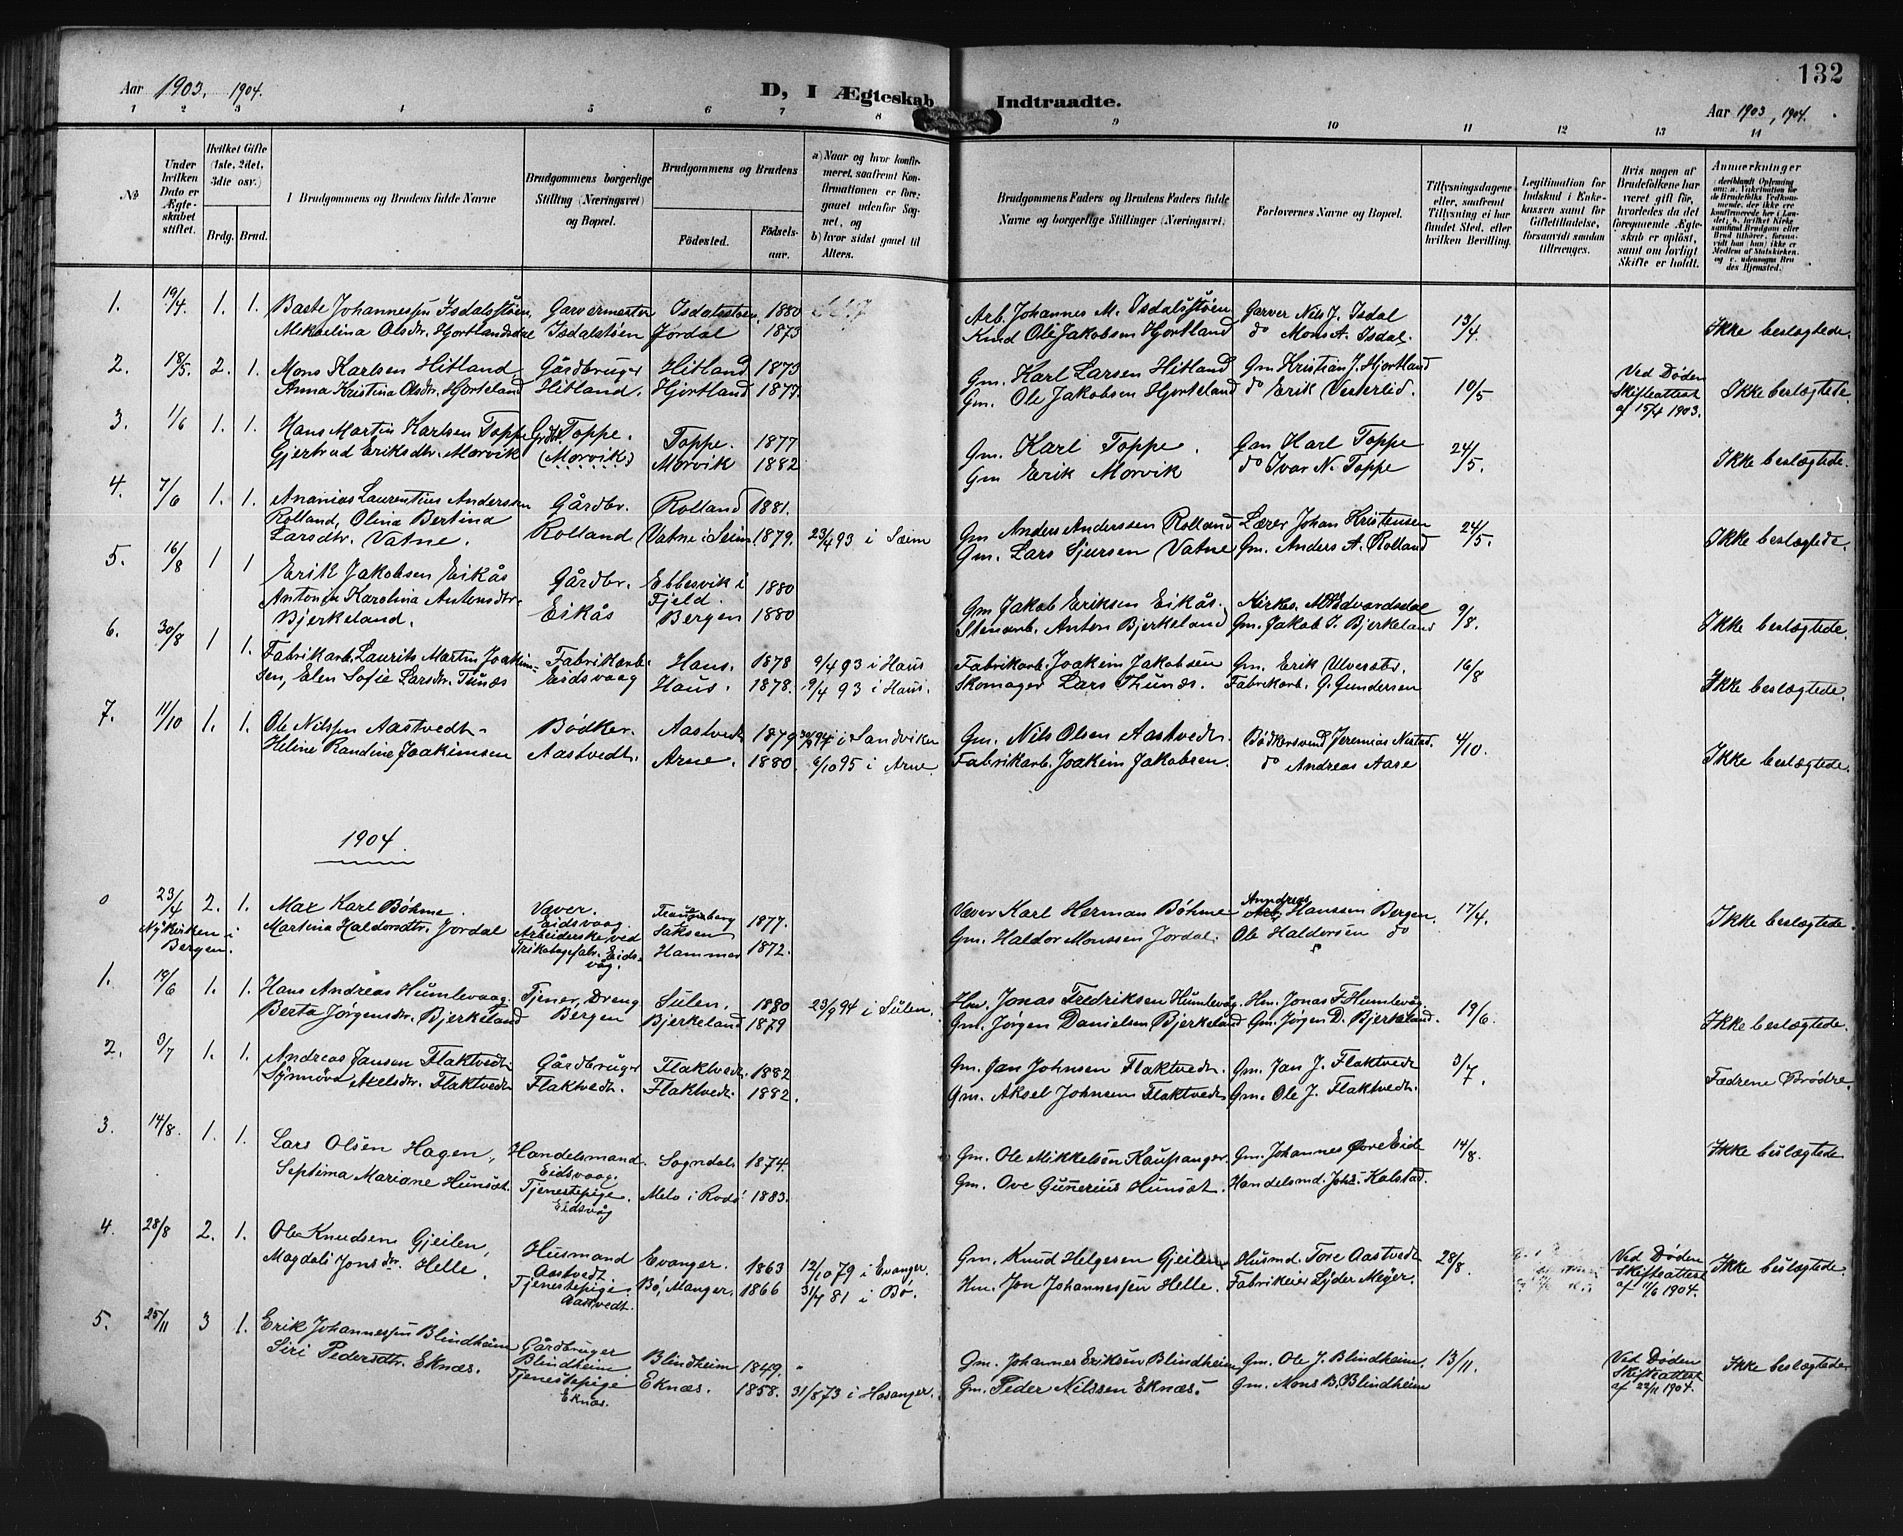 Aar 1903. 1904.
D, I Ægteskab Indtraadte.
132
Aar 1903, 1904.
1 2 3 4 5 6 7 8 9 10 11 12 13 14
No
Under hvilken Dato er Ægteskabet stiftet.
Hvilket Gifte (1ste, 2det, 3die osv.)
Brdg. Brud.
I Brudgommens og Brudens fulde Navne
Brudgommens borgerlige Stilling (Næringsvei) og Bopæl.
Brudgommens og Brudens
Fødested. Fødselsaar.
a) Naar og hvor konfirmeret, saafremt Konfirmationen er foregaaet udenfor Sognet, og
b) hvor sidst gaaet til Alters.
Brudgommens Faders og Brudens Faders fulde Navne og borgerlige Stillinger (Næringsvei).
Forlovernes Navne og Bopæl.
Tillysningsdagene eller, saafremt Tillysning ei har fundet Sted, efter hvilken Bevilling.
Legitimation for Indskud i Enkekassen samt for Giftetilladelse, forsaavidt saadan tiltrænges.
Hvis nogen af Brudefolkene har været gift før, hvorledes da det foregaaende Ægteskab er opløst, samt om lovligt Skifte er holdt.
Anmerkninger
1. 19/4 1. 1. Baste Johannessen Isdalsstøen, Garvermester Isdalsstøen, 1880 Arb. Johannes M. Isdalsstøen Garver Nils J. Isdal 13/4 Ikke beslægtede.
Mikkelina Olsdr. Hjortlandsdal Isdalstøen Jordal 1873 Knud Ole Jakobsen Hjortland do Mons A. Isdal.
2. 18/5. 2. 1. Mons Karlsen Hitland Gårdbruger Hitland 1873 Gm. Karl Larsen Hitland Gm Kristian J. Hjortland 10/5 Ved Døden Skifteattest af 15/4 1903. Ikke beslægtede.
Anna Kristina Olsdr. Hjorteland Hitland. Hjortland 1877. Gm. Ole Jakobsen Hjorteland do Erik Vesterlid.
3. 1/6 1. 1. Hans Martin Karlsen Toppe Grdbr. Toppe. Toppe. 1877 Gm. Karl Toppe. Gm Karl Toppe 24/5. Ikke beslægtede.
Gjertrud Eriksdtr. Morvik (Morvik) Morvik 1882 Gm Erik Morvik do Ivar N. Toppe
4. 7/6 1. 1. Ananias Laurentius Anderssen Gårdbr. Rolland 1881. Gm Anders Anderssen Rolland Lærer Johan Kristensen 24/5. Ikke beslægtede.
Rolland, Olina Bertina Rolland Vatne i Seim. 1879. 23/4 93 i Sæim Gm. Lars Sjursen Vatne Gm. Anders A. Rolland
Larsdtr. Vatne.
5. 16/8 1 1 Erik Jakobsen Eikås Gårdbr. Ebbesvik i Fjeld. 1880 Gm Jakob Eriksen Eikås. Kirkes. A. Edvardsdal 9/8. Ikke beslægtede.
Antonie Karolina Antonsdtr. Eikås Bergen 1880 Stenarb. Anton Bjerkeland Gm. Jakob J. Bjerkeland
Bjerkeland.
6. 30/8 1 1. Fabrikarb. Laurits Martin Joakim- Fabrikarb. Haus. 1878 9/4 93 i Haus Fabrikarb. Joakim Jakobsen Gm. Erik Ulverstr. 16/8 Ikke beslægtede.
sen, Elen Sofie Larsdtr. Tunæs Eidsvaag Haus. 1878. 9/4 93 i Haus. Skomager Lars Thunæs. Fabrikarb. G. Gundersen
7. 11/10 1. 1. Ole Nilssen Aastvedt. Bødker. Aastvedt 1879 i Sandviken Gm. Nils Olsen Aastvedt. Bødkersvend Jeremias Nestad. 4/10. Ikke beslægtede.
Heline Randine Joakimsen Aastvedt. Arne. 1880. 6/10 95 i Arne. Fabrikarb. Joakim Jakobsen. do Andreas Aase
1904.
0 23/4 2. 1. Max Karl Bøhme. Væver. Frankenberg 1877. Væver Karl Herman Bøhme Anndreas Hanssen Bergen. 17/4. Ikke beslægtede.
Nykirken i Bergen. Martina Haldorsdtr. Jordal Eidsvaag. Saksen
Arbeiderske ved Trikotagefabr. Eidsvåg. Hammer 1872. Gm. Haldor Monssen Jordal. Ole Haldorsen do
1. 19/6 1. 1. Hans Andreas Humlevaag. Tjener, Dreng Sulen. 1880 23/9 94 i Sulen. Hm. Jonas Fredriksen Humlevåg. Hm. Jonas F Humlevåg. 19/6. Ikke beslægtede.
Berta Jørgensdtr. Bjerkeland Bergen Bjerkeland 1879 Gm. Jørgen Danielsen Bjerkeland Gm. Jørgen D. Bjerkeland.
2. 3/7 1. 1. Andreas Jansen Flaktvedt. Gårdbruger Flaktvedt. 1882 Gm. Jan Johnsen Flaktvedt. Gm. Jan J. Flaktvedt 3/7. Fædrene Brødre.
Synnøva Axelsdtr. Flaktvedt Flaktvedt. Flaktvedt. 1882. Gm. Aksel Johnsen Flaktvedt Gm. Ole J. Flaktvedt.
3. 14/8. 1. 1. Lars Olsen Hagen, Handelsmand. Sogndal. 1874. Gm. Ole Mikkelsen Kaupanger. Gm. Johannes Øvre Eide 14/8. Ikke beslægtede
Septima Mariane Hunsæt. Eidsvaag. Tjenestepige. Eidsvåg Melo i Rodø 1883. Gm. Ove Gunerius Hunsæt. Handelsmd. Johs. Kolstad.
4. 28/8 2. 1. Ole Knudsen Gjeilen, Husmand Aastvedt. Evanger. 1863 12/10 79 i Evanger. Gm. Knud Helgesen Gjeilen Husmd. Tore Aastvedt 28/8. Ved Døden Skifteattest af 11/6 1904. Ikke beslægtede.
Magdali Jonsdtr. Helle. Tjenestepige Aastvedt. Bø, Manger. 1866 31/7 81 i Bø. Hm. Jon Johannessen Helle. Fabrikeier Lyder Meyer.
5. 25/11 3 1. Erik Johannessen Blindheim Gårdbruger Blindheim Blindheim 1849. " Gm. Johannes Eriksen Blindheim, Gm. Ole J. Blindheim. 13/11. Ved Døden Skifteattest af 22/11 1904. Ikke beslægtede
Siri Pedersdtr. Eknæs. Tjenestepige Eknæs. Eknæs. 1858. 31/8 73 i Hosanger. Gm. Peder Nilssen Eknæs. Gm. Mons B. Blindheim